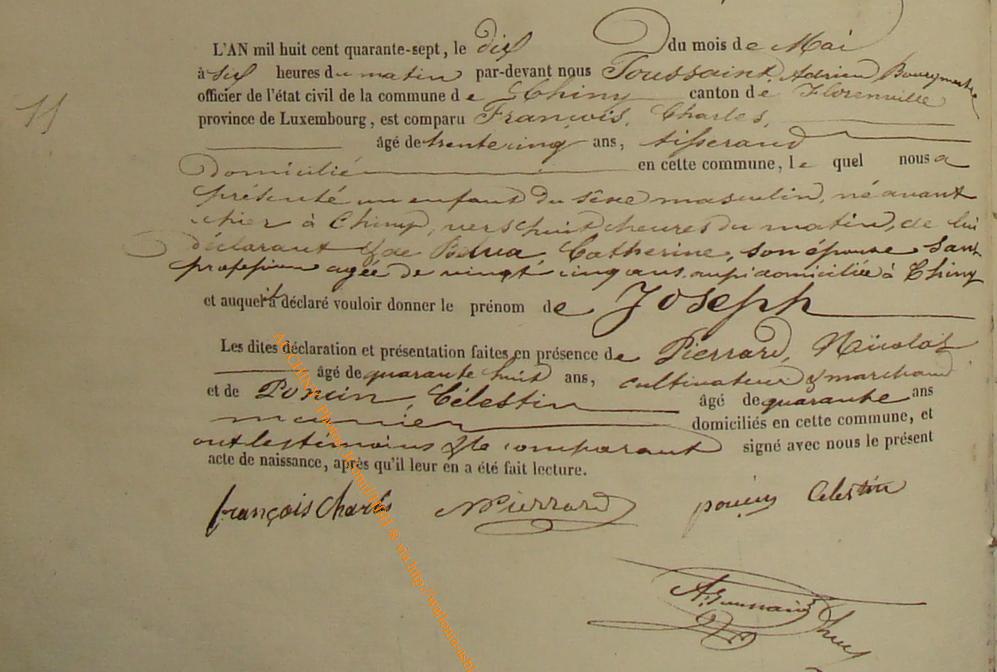 11
L'AN mil huit cent quarante-sept, le dix du mois de Mai
à six heures du matin par-devant nous Toussaint, Adrien Bourgmestre
officier de l'état civil de la commune de Chiny canton de Florenville
province de Luxembourg, est comparu François, Charles,
âgé de trente cinq ans, tisserand
Domicilié en cette commune, le quel nous a
présenté un enfant du sexe masculin, né avant
hier à Chiny, vers huit heures du matin, de lui
déclarant & de Catherine, son épouse Sans
profession agée de vingt cinq ans aussi domiciliée à Chiny
et auquel il a déclaré vouloir donner le prénom de Joseph
Les dites déclaration et présentation faites en présence de Pierrard, Nicolas
âgé de quarante huit ans, cultivateur & marchand
et de Poncin, Célestin âgé de quarante ans
meunier domiciliés en cette commune, et
ont les temoins & le comparant signé avec nous le présent
acte de naissance, après qu'il leur en a été fait lecture.
françois Charles N Pierrard poncin Celestin
A. Toussaint